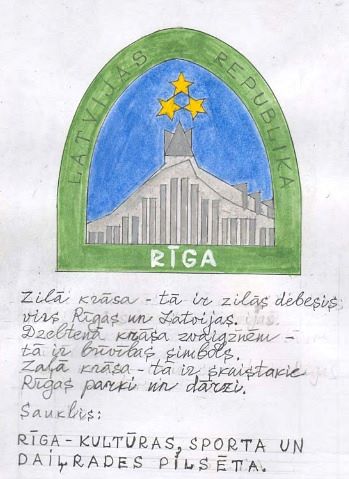 LATVIJAS REPUBLIKA
RĪGA
Zilā krāsa - tā ir zilās debesis
virs Rīgas un Latvijas.
Dzeltenā krāsa zvaigznēm -
tā ir būvības simbols.
Zaļā krāsa - tā ir skaistākie
Rīgas parki un dārzi.
Sauklis:
RĪGA - KULTŪRAS, SPORTA UN
DAIĻRADES PILSĒTA.